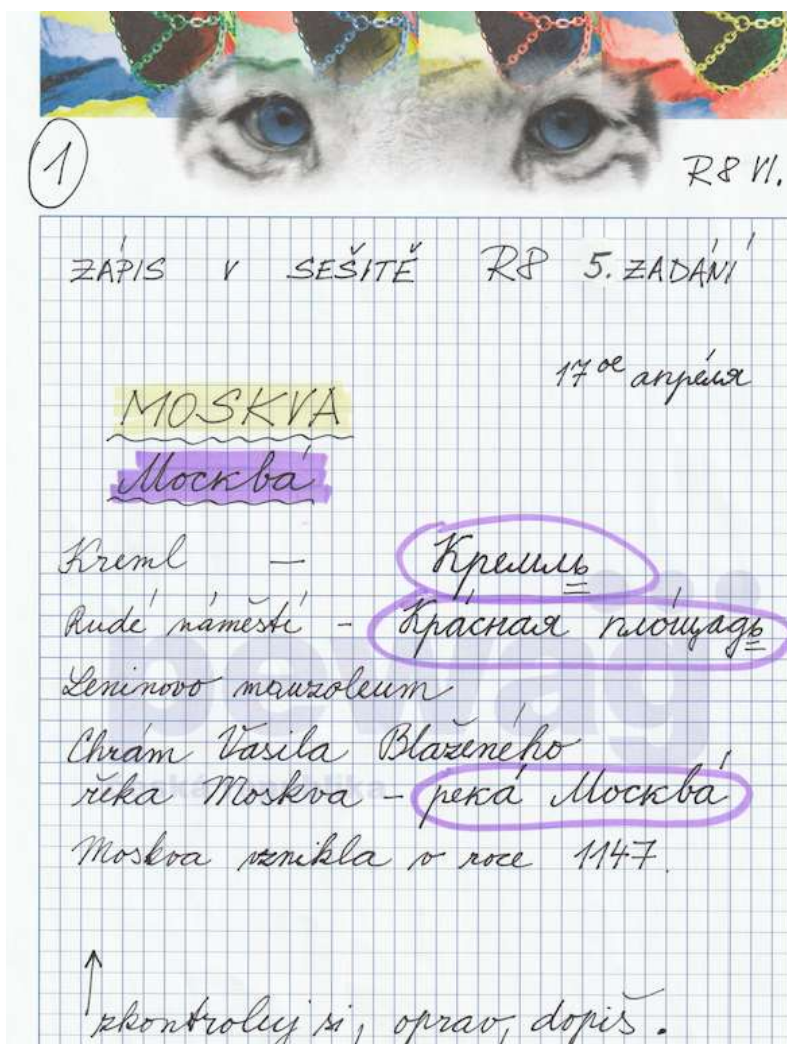 1
R8 VI.
ZÁPIS V SEŠITĚ R8 5. ZADÁNÍ
17ое апре́ля
MOSKVA
Москва́
Kreml — Кремль
Rudé náměstí - Кра́сная пло́щадь
Leninovo mauzoleum
Chrám Vasila Blaženého
řeka Moskva - река́ Москва́
Moskva vznikla v roce 1147.
zkontroluj si, oprav, dopiš.
pewag